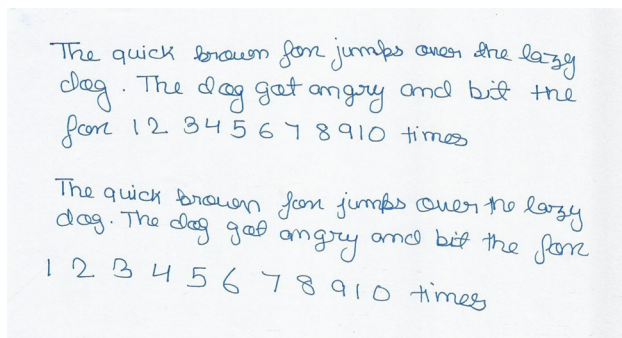 The quick brown fox jumps over the lazy
dog. The dog got angry and bit the
fox 1 2 3 4 5 6 7 8 9 10 times
The quick brown fox jumps over the lazy
dog. The dog got angry and bit the fox
1 2 3 4 5 6 7 8 9 10 times